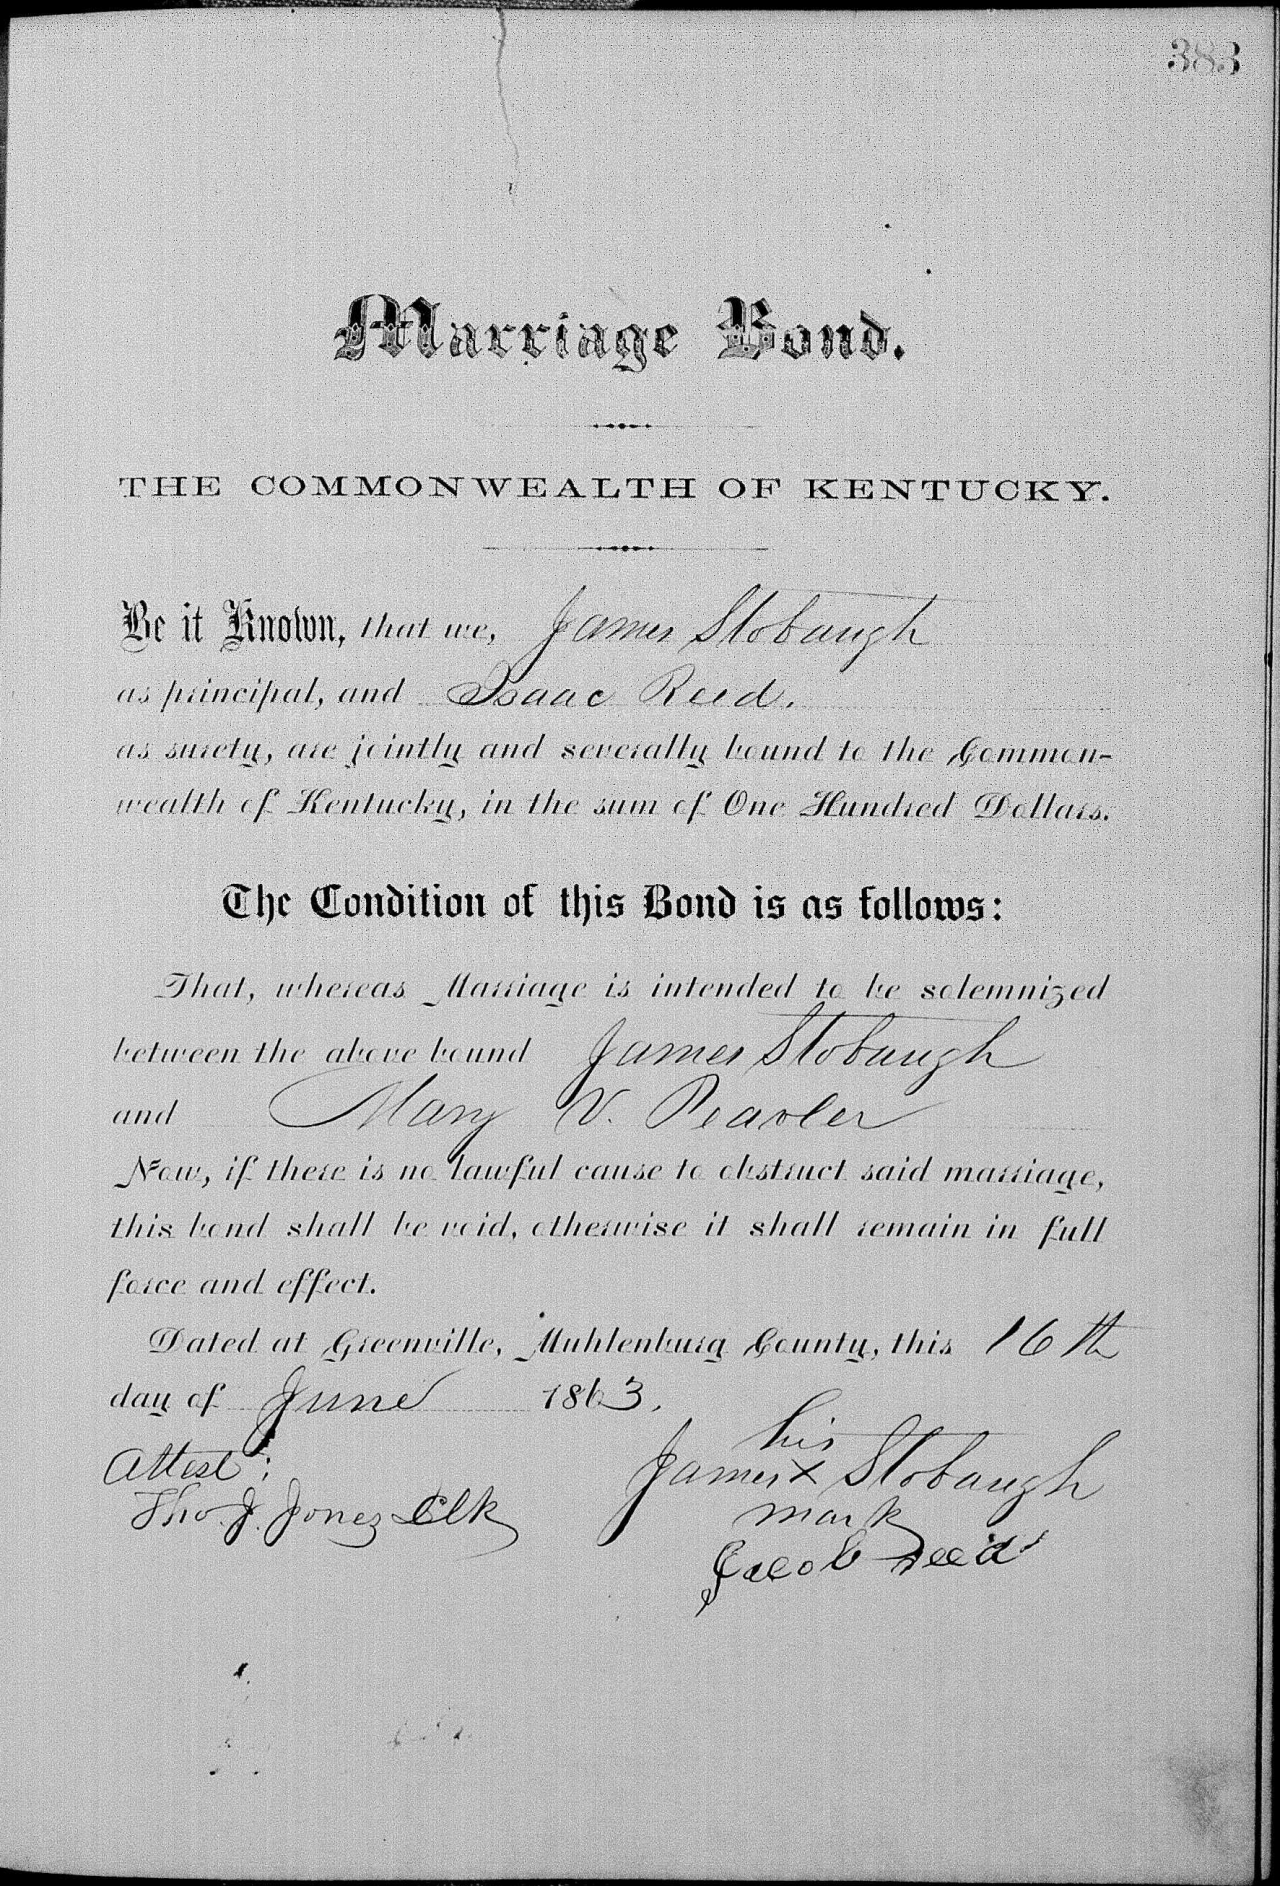 383
Marriage Bond.
THE COMMONWEALTH OF KENTUCKY.
Be it Known, that we, James Stobaugh
as principal, and Isaac Reed.
as surety, are jointly and severally bound to the Common-
wealth of Kentucky, in the sum of One Hundred Dollars.
The Condition of this Bond is as follows:
That, whereas Marriage is intended to be solemnized
between the above bound James Stobaugh
and Mary V. Peavler
Now, if there is no lawful cause to obstruct said marriage,
this bond shall be void, otherwise it shall remain in full
force and effect.
Dated at Greenville, Muhlenburg County, this 16th
day of June 1863.
his
Attest; James X Stobaugh
Tho. J. Jones Clk mark
Jacob Reed